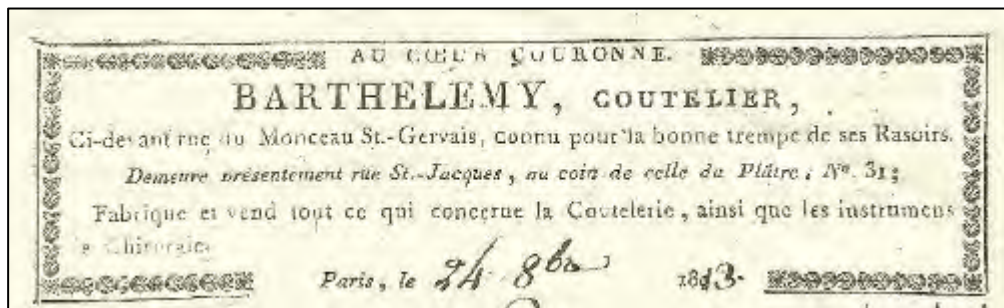 AU CŒUR COURONNE.
BARTHELEMY, COUTELIER,
Ci-devant rue du Monceau St.-Gervais, connu pour la bonne trempe de ses Rasoirs.
Demeure présentement rue St.-Jacques, au coin de celle du Plâtre, Nº. 31;
Fabrique et vend tout ce qui concerne la Coutelerie, ainsi que les instrumens
de Chirurgie
Paris, le 24 8bre 1813.